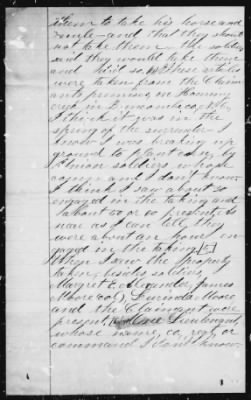 them to take his horse and
mule - and that they should
not take them - the soldiers
said they would take them
and did so, These articles
were taken from the Claim
ants premises, on Hominy
creek in Buncombe co, N.C.
I think it was in the
spring of the surrender - I
know I was breaking up
ground to plant corn, by
Union soldiers whose
comp and I don't know.
I think I saw about 20
engaged in the taking and
about 50 or so present. As
near as I can tell, they
were about an hour en
gaged in the taking [5]
When I saw the property
taken, besides soldiers,
Margret E. Alexander, James
Moore (col), Lucinda Moore
and the Claimant were
present, one Lieutenant
whose name, co, regt or
command I don't know.